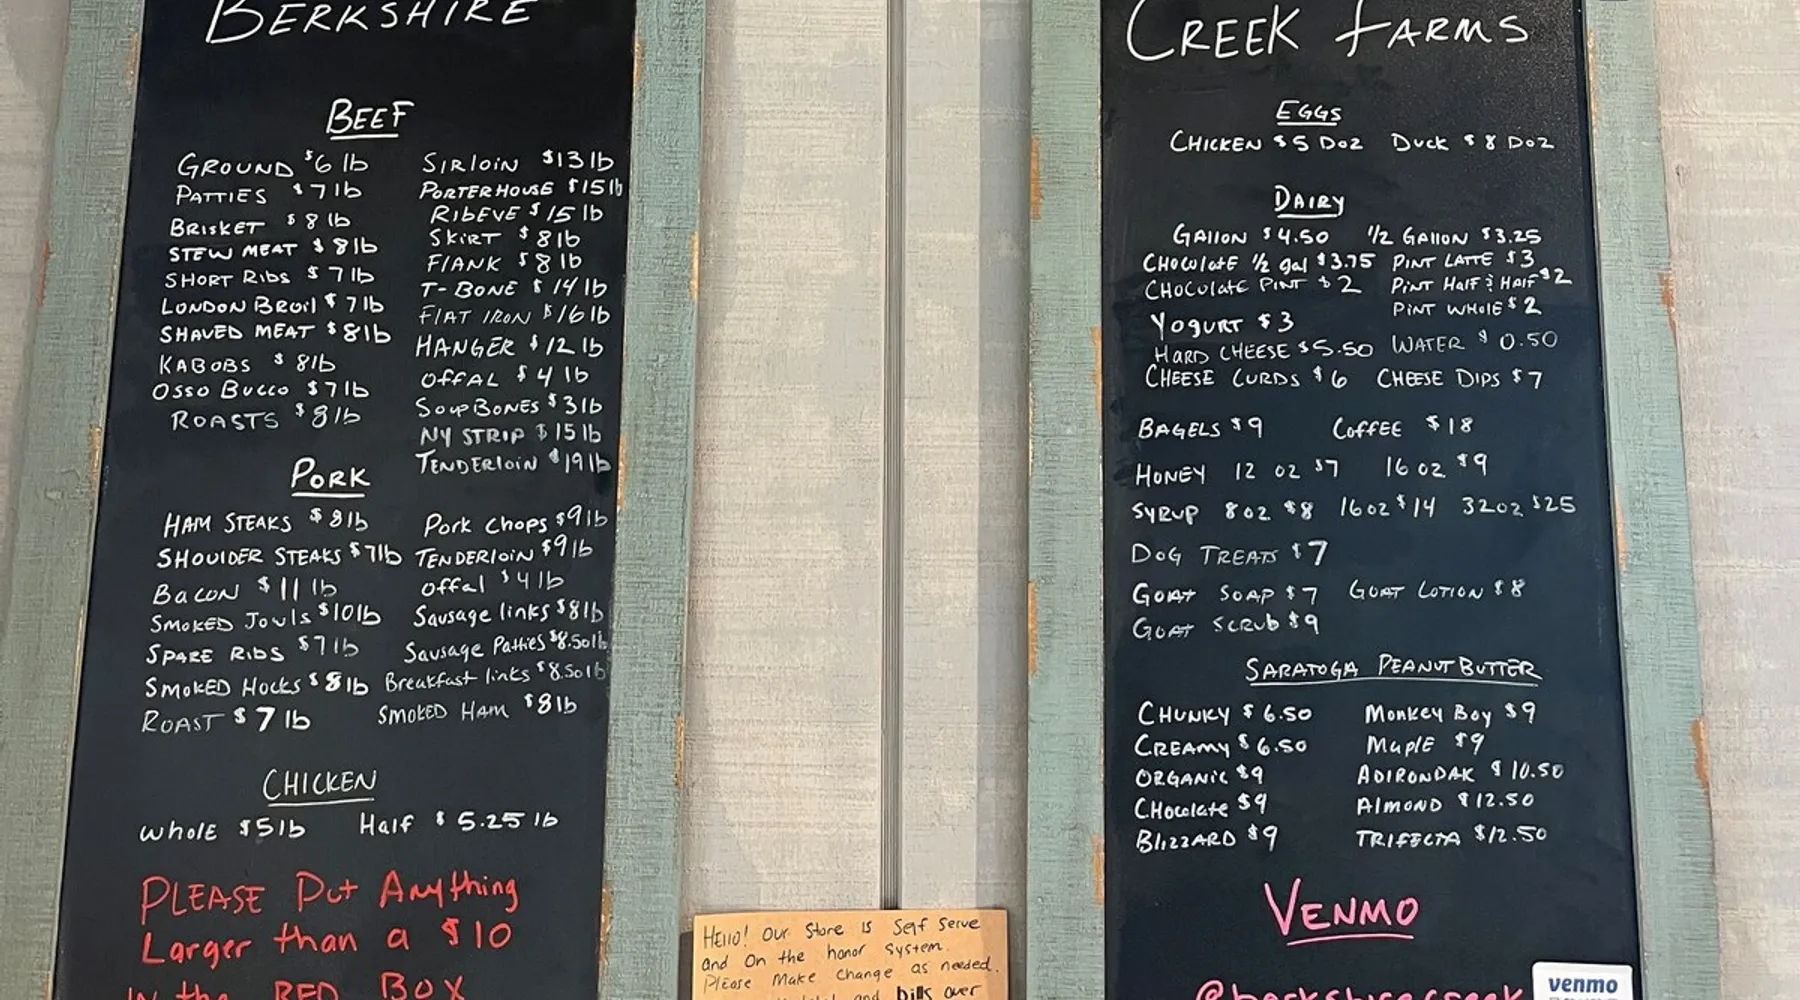 BERKSHIRE
BEEF
GROUND $6 lb
PATTIES $7 lb
BRISKET $8 lb
STEW MEAT $8 lb
SHORT RIBS $7 lb
LONDON BROIL $7 lb
SHAVED MEAT $8 lb
KABOBS $8 lb
OSSO BUCCO $7 lb
ROASTS $8 lb
SIRLOIN $13 lb
PORTERHOUSE $15 lb
RIBEYE $15 lb
SKIRT $8 lb
FLANK $8 lb
T-BONE $14 lb
FLAT IRON $16 lb
HANGER $12 lb
OFFAL $4 lb
SOUP BONES $3 lb
NY STRIP $15 lb
TENDERLOIN $19 lb
PORK
HAM STEAKS $8 lb
SHOULDER STEAKS $7 lb
BACON $11 lb
SMOKED JOWLS $10 lb
SPARE RIBS $7 lb
SMOKED HOCKS $8 lb
ROAST $7 lb
Pork Chops $9 lb
TENDERLOIN $9 lb
Offal $4 lb
Sausage links $8 lb
Sausage Patties $8.50 lb
Breakfast links $8.50 lb
SMOKED HAM $8 lb
CHICKEN
Whole $5 lb Half $5.25 lb
PLEASE Put Anything
Larger than a $10
IN the RED BOX
Hello! Our Store is Self Serve
and On the honor system.
Please Make Change as needed.
and bills over
CREEK FARMS
EGGS
CHICKEN $5 DOZ DUCK $8 DOZ
DAIRY
GALLON $4.50 1/2 GALLON $3.25
CHOCOLATE 1/2 gal $3.75 PINT LATTE $3
CHOCOLATE PINT $2 PINT HALF & HALF $2
PINT WHOLE $2
YOGURT $3
HARD CHEESE $5.50 WATER $0.50
CHEESE CURDS $6 CHEESE DIPS $7
BAGELS $9 COFFEE $18
HONEY 12 OZ $7 16 OZ $9
SYRUP 8 OZ $8 16 OZ $14 32 OZ $25
DOG TREATS $7
GOAT SOAP $7 GOAT LOTION $8
GOAT SCRUB $9
SARATOGA PEANUT BUTTER
CHUNKY $6.50 MONKEY BOY $9
CREAMY $6.50 MAPLE $9
ORGANIC $9 ADIRONDAK $10.50
CHOCOLATE $9 ALMOND $12.50
BLIZZARD $9 TRIFECTA $12.50
VENMO
@berkshirecreek
venmo